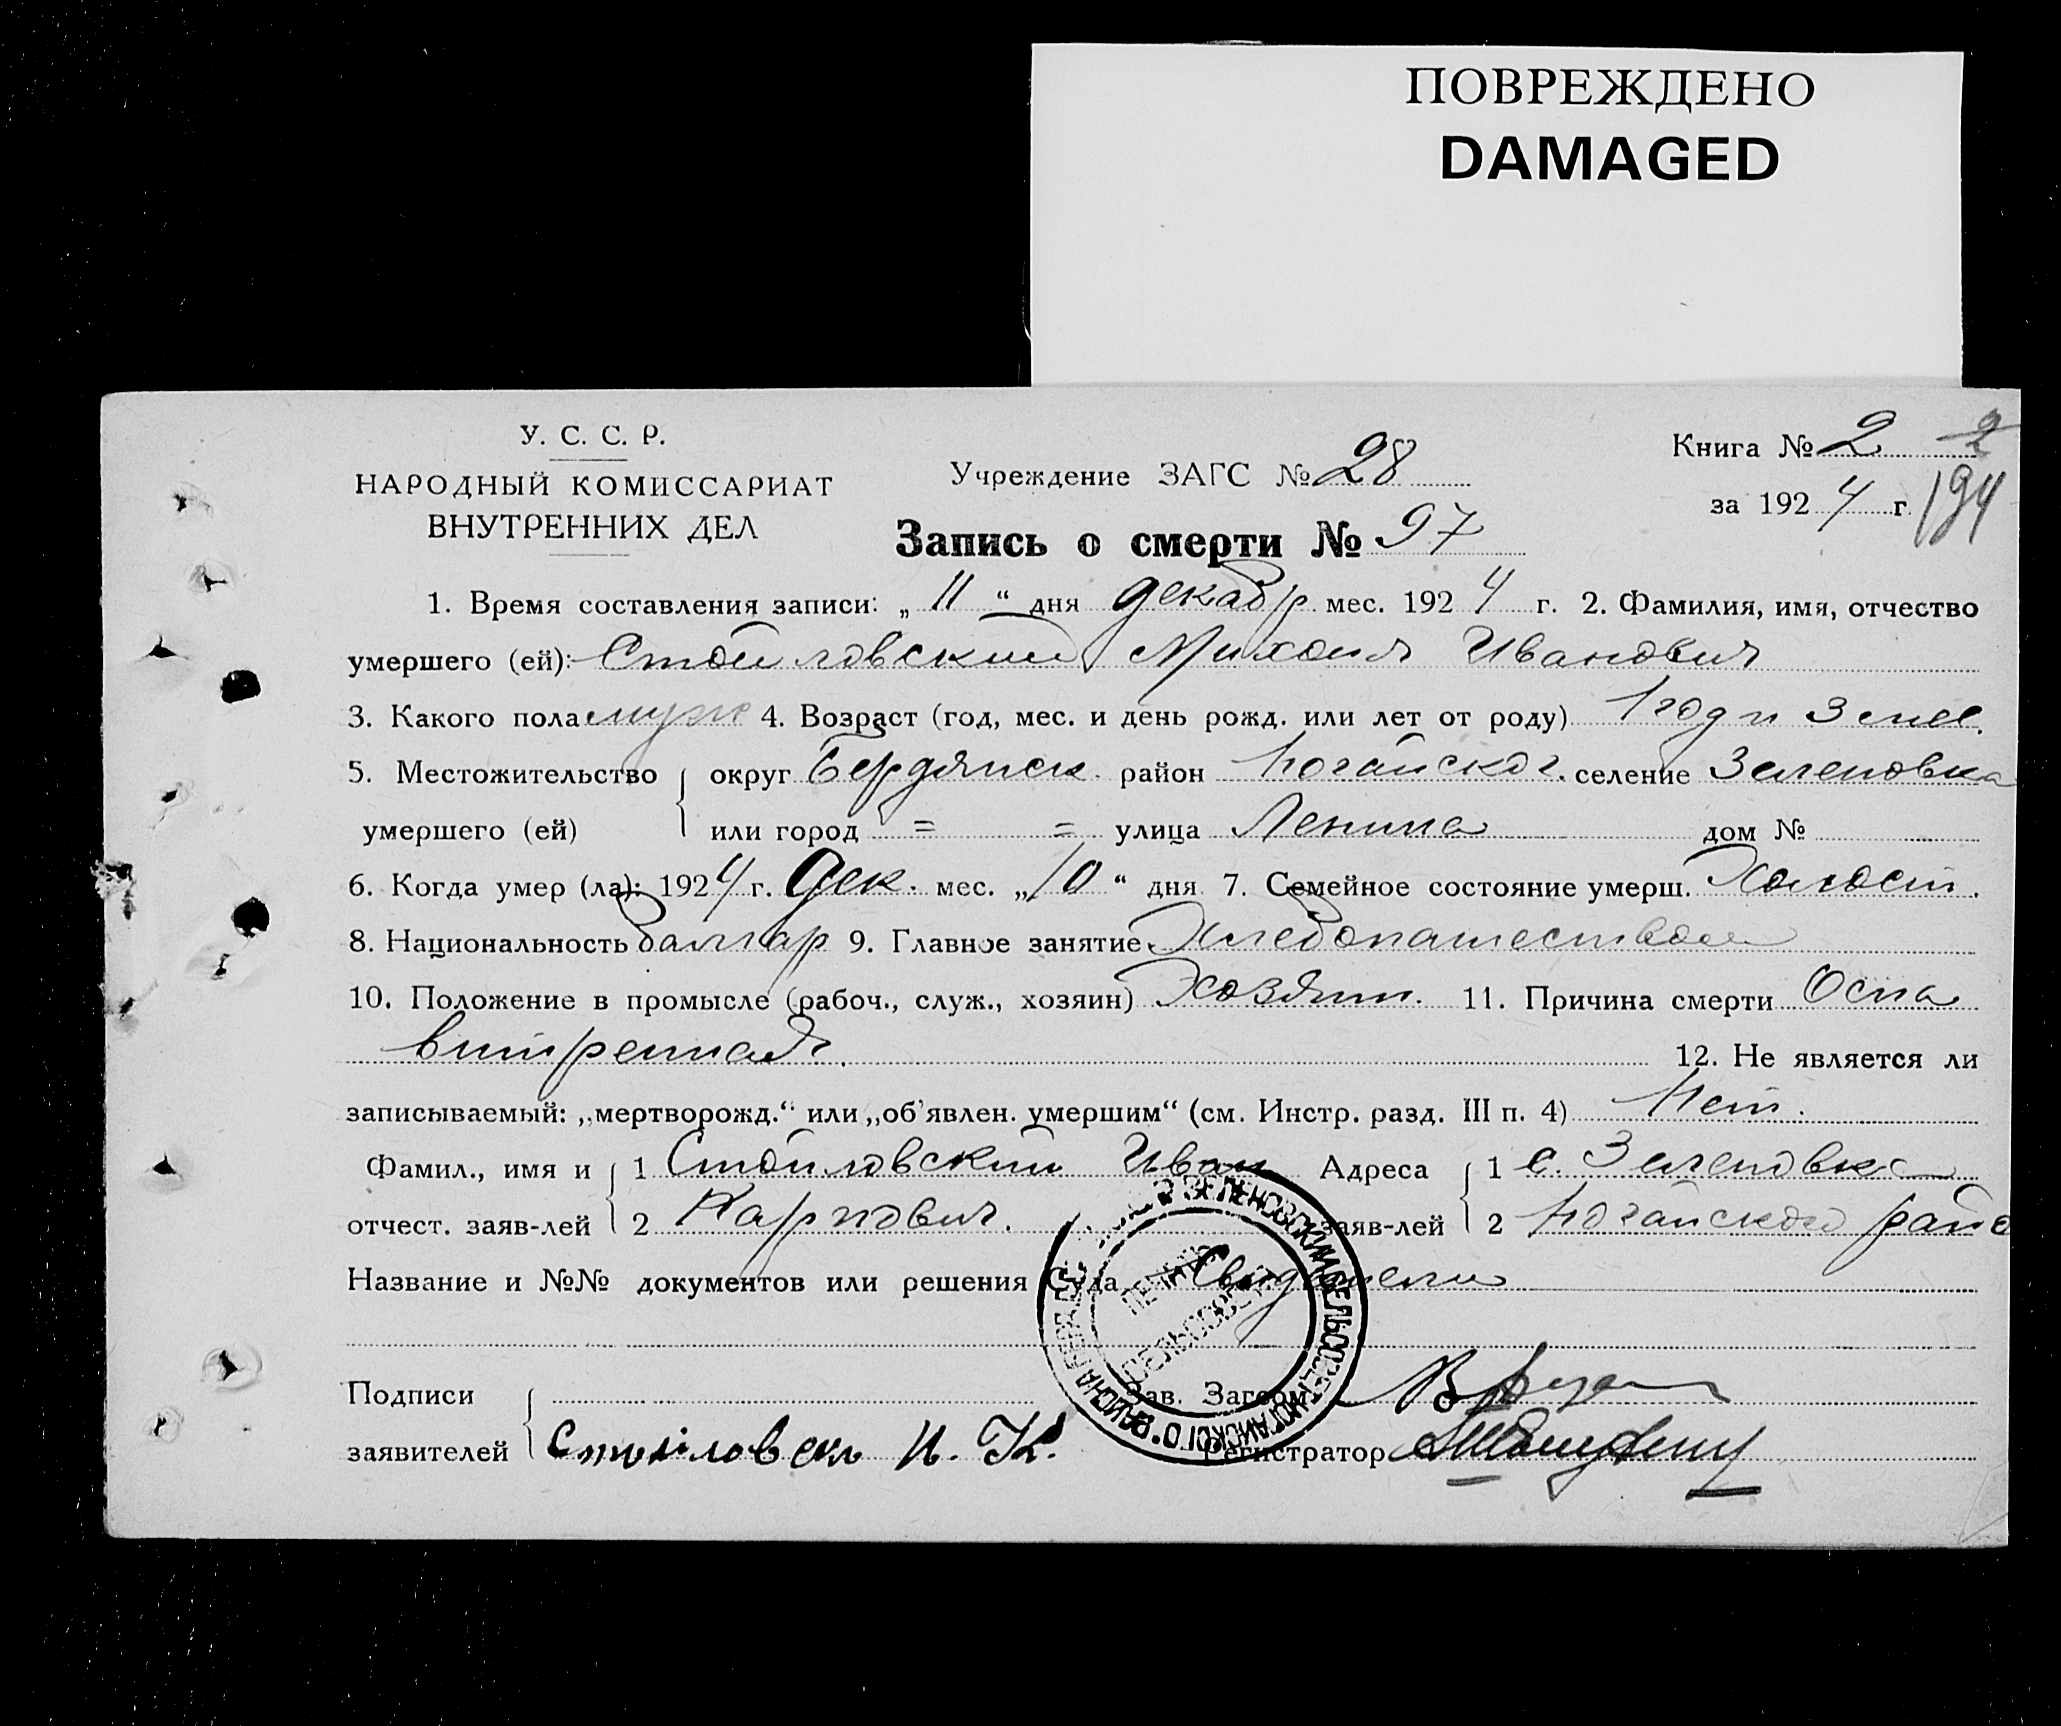 ПОВРЕЖДЕНО
DAMAGED
У. С. С. Р.
НАРОДНЫЙ КОМИССАРИАТ
ВНУТРЕННИХ ДЕЛ
Учреждение ЗАГС № 28
Книга № 2 2
за 1924 г. 194
Запись о смерти № 97
1. Время составления записи: „11“ дня декабр мес. 1924 г. 2. Фамилия, имя, отчество
умершего (ей): Стойловский Михаил Иванович
3. Какого пола муж 4. Возраст (год, мес. и день рожд. или лет от роду) 1 год и 3 мес.
5. Местожительство округ Бердянск. район Ногайског. селение Зеленовка
умершего (ей) или город = = улица Ленина дом №
6. Когда умер (ла): 1924 г. Дек. мес. „10“ дня 7. Семейное состояние умерш. Холост.
8. Национальность болгар 9. Главное занятие Хлебопашеством
10. Положение в промысле (рабоч., служ., хозяин) Хозяин. 11. Причина смерти Оспа
витренная. 12. Не является ли
записываемый: „мертворожд.“ или „об'явлен. умершим“ (см. Инстр. разд. III п. 4) Нет.
Фамил., имя и 1 Стойловский Иван Адреса 1 с. Зеленовка
отчест. заяв-лей 2 Карпович. заяв-лей 2 Ногайского райо
Название и №№ документов или решения Суда
Подписи Зав. Загсом
заявителей Стоиловски И. К. Регистратор